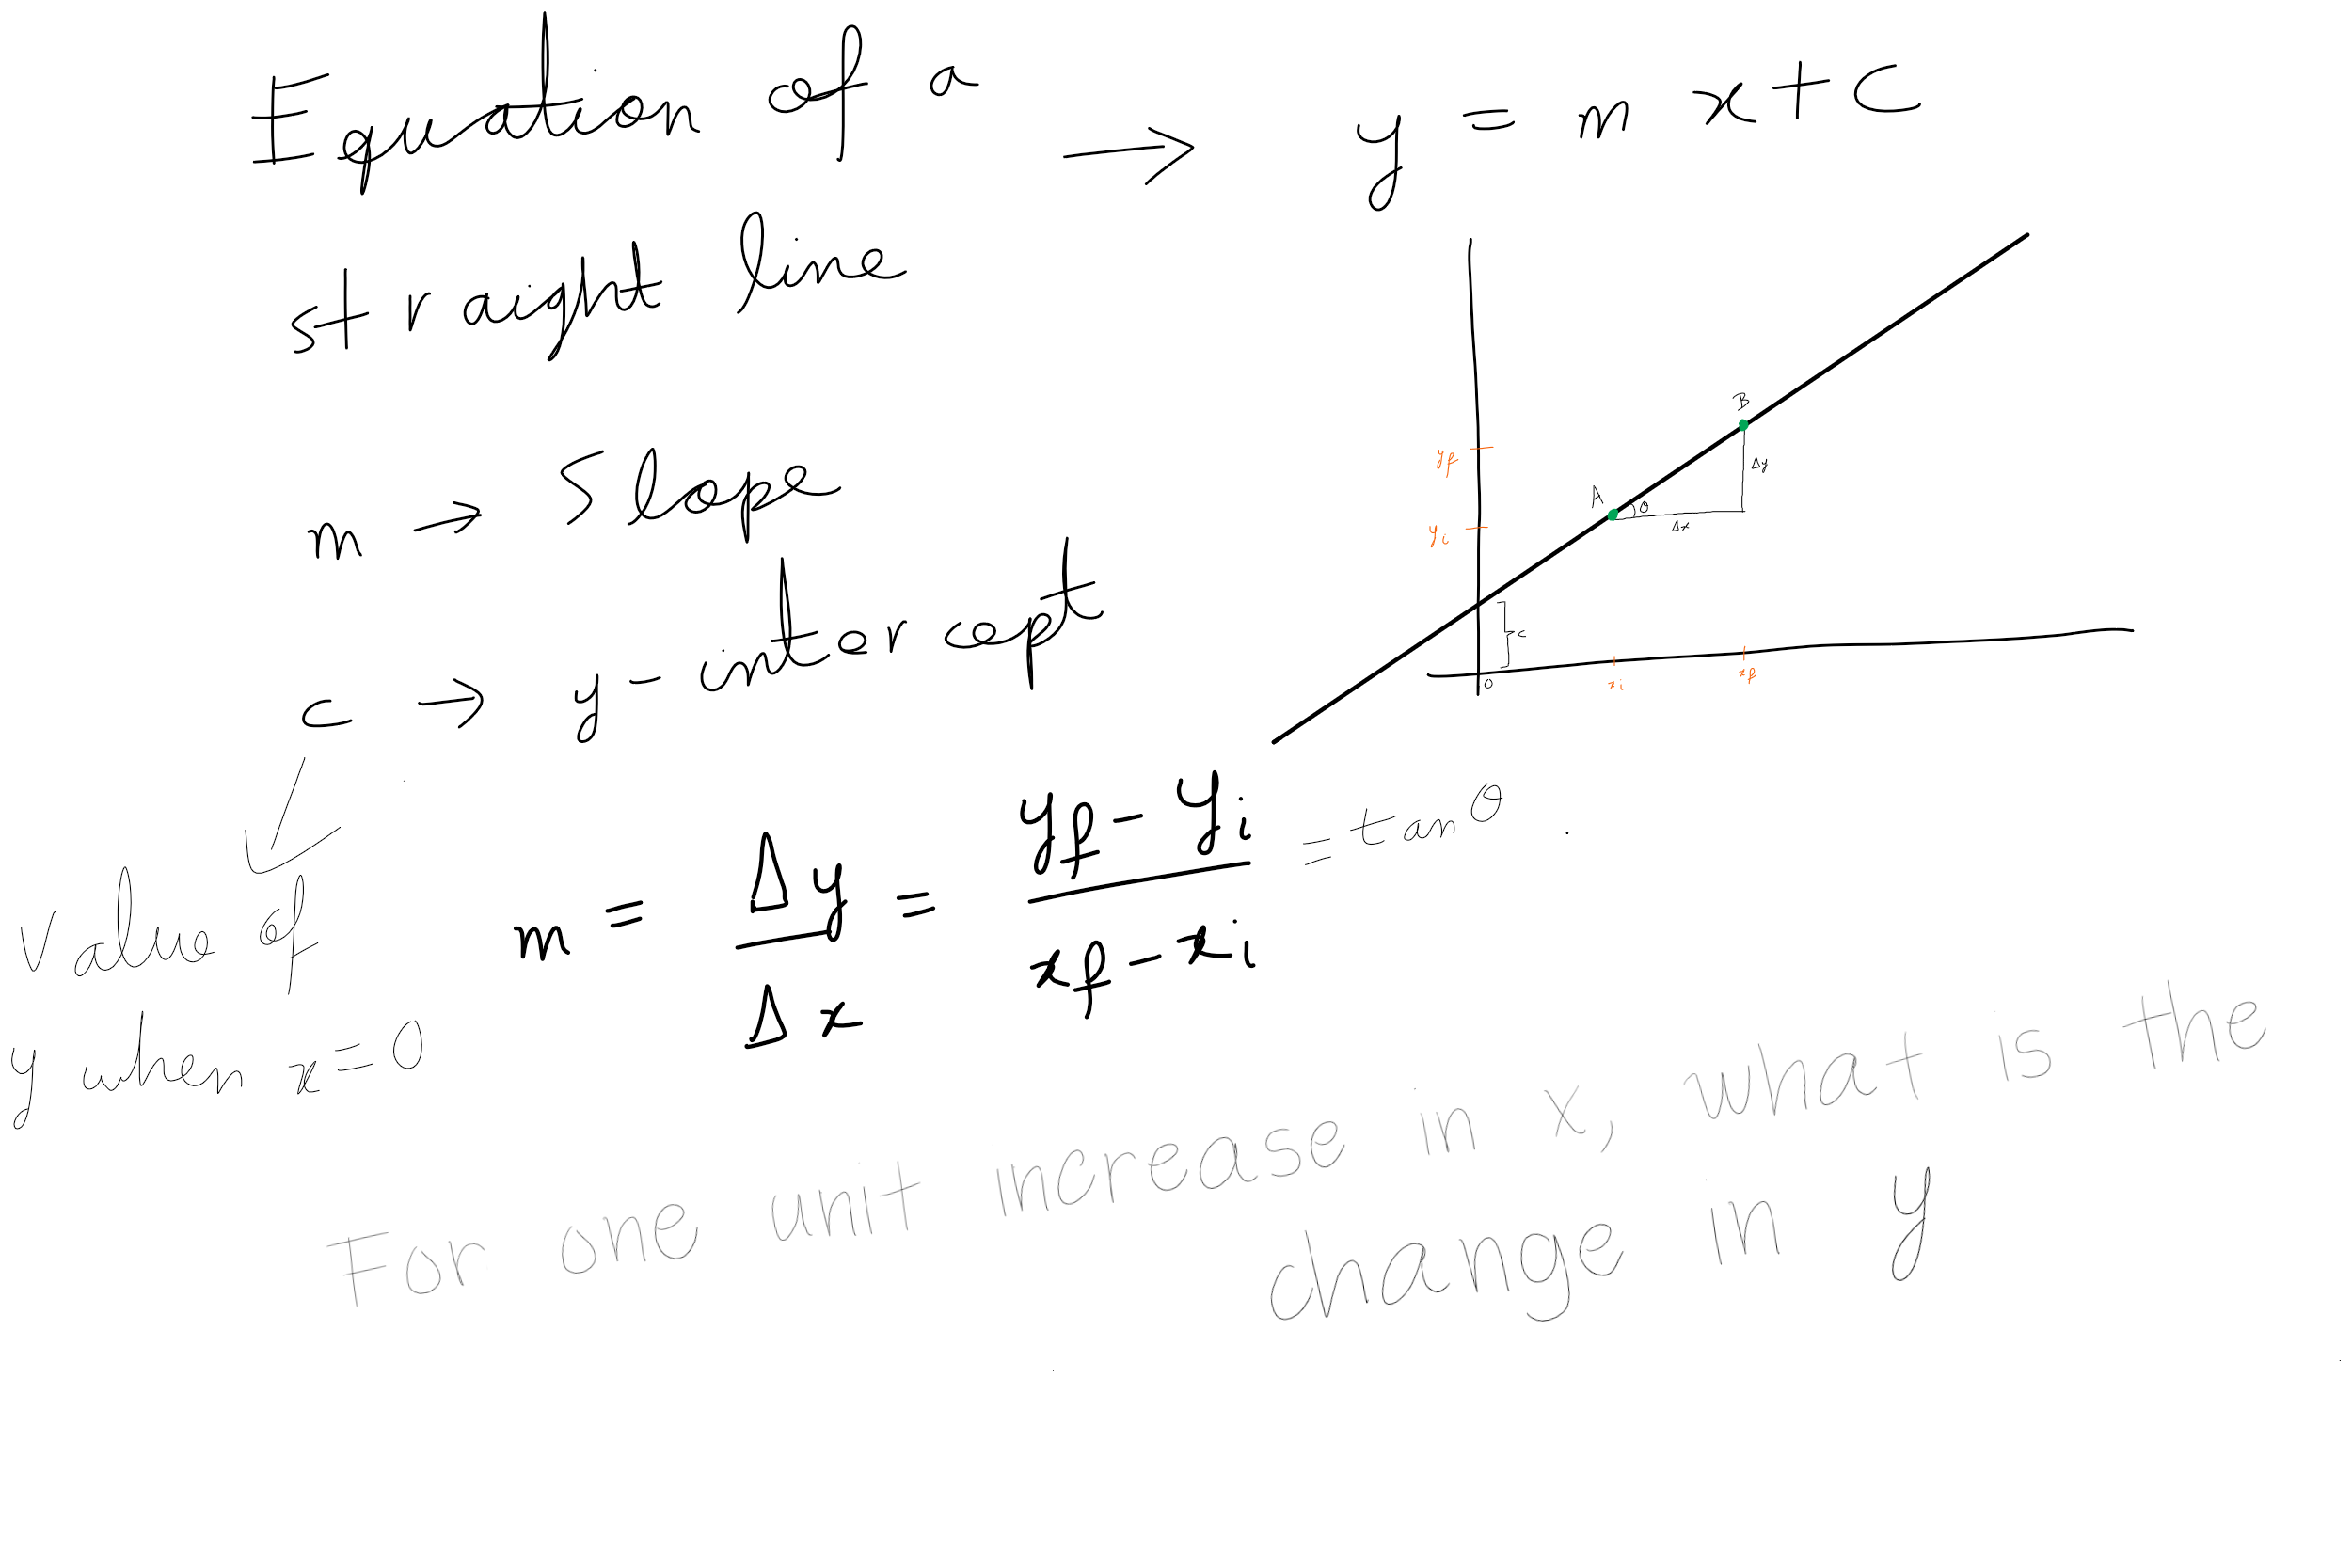 Equation of a → y = mx + c
straight line
m → Slope
c → y-intercept
Value of
y when x = 0
y_f
y_i
A
B
θ
Δy
Δx
c
0
x_i
x_f
m = Δy / Δx = (y_f - y_i) / (x_f - x_i) = tan θ
For one unit increase in x, what is the
change in y